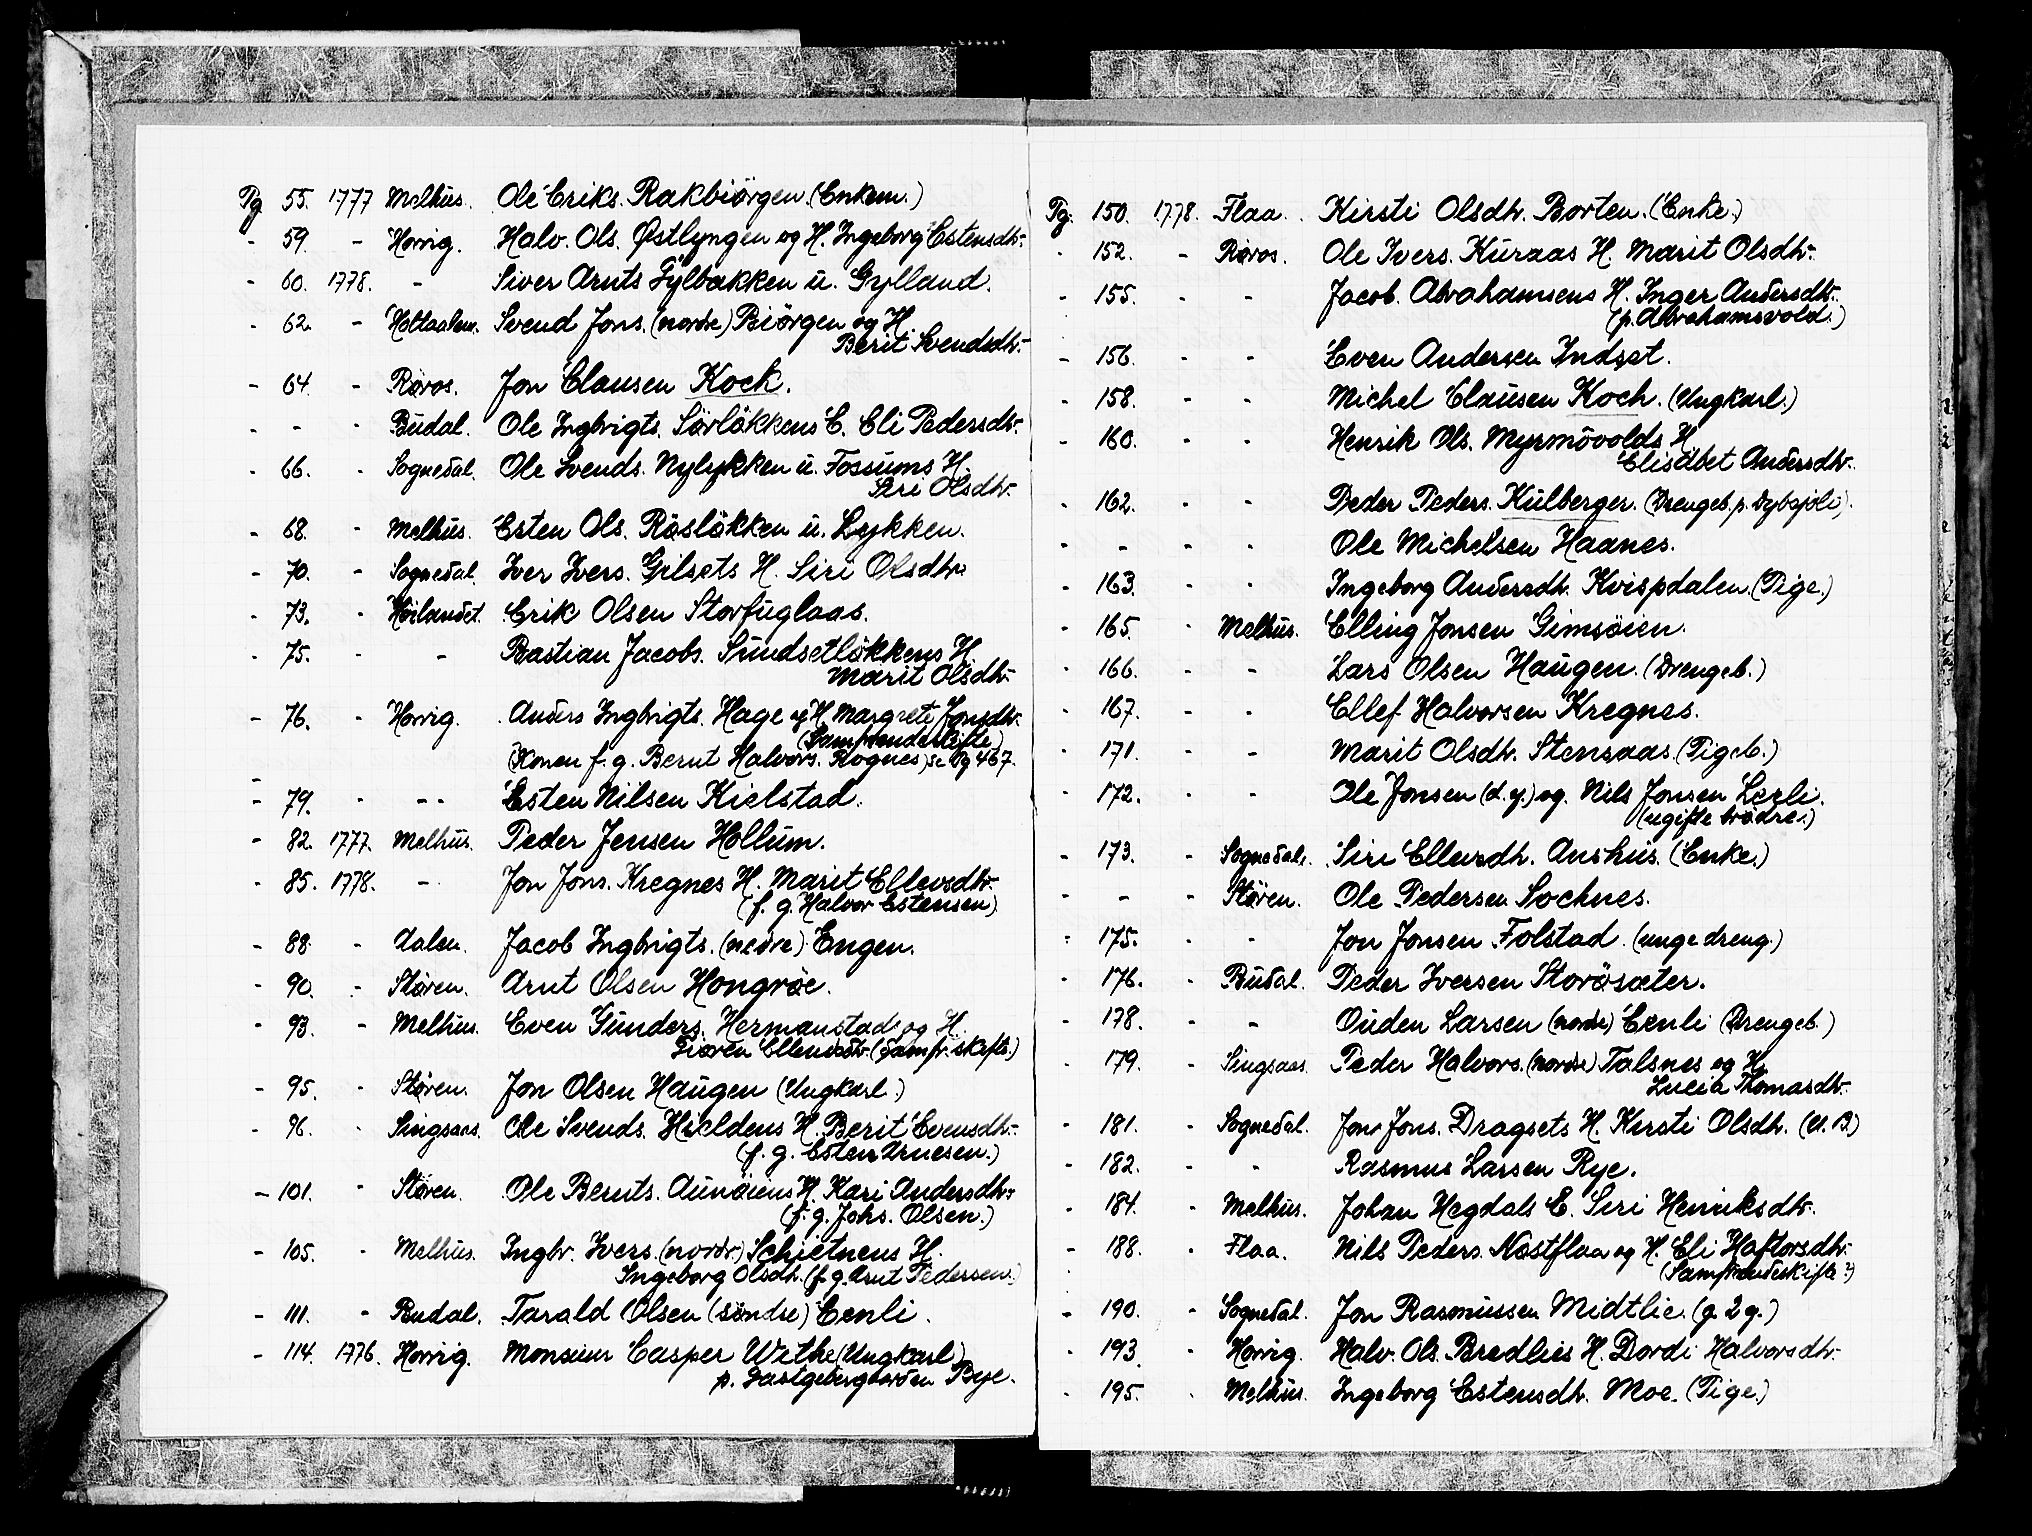 Pg 55. 1777 Melhus. Ole Eriks. Rakbiörgen (Enkem.)
- 59. - Horrig. Halv. Ols. Østlyngen og H. Ingeborg Estensdtr.
- 60. 1778. - Siver Arnts Fylbakken u. Gylland.
- 62. - Holtaalen. Svend Jons. (nordre) Biörgen og H.
Berit Svendsdtr.
- 64. - Røros. Jon Clausen Kock.
- - - Budal. Ole Ingbrigts. Sörlökkens E. Eli Pedersdtr.
- 66. - Sognedal. Ole Svends. Nylykken u. Fossums H.
Siri Olsdtr.
- 68. - Melhus. Esten Ols. Röslökken u. Lykken.
- 70. - Sognedal. Iver Ivers. Gilsets H. Siri Olsdtr.
- 73. - Høilandet. Erik Olsen Storfuglaas.
- 75. - - Bastian Jacobs. Sundsetlökkens H.
Marit Olsdtr.
- 76. - Horrig. Anders Ingbrigts. Hage og H. Margrete Jonsdtr.
(Samfrendeskifte)
- (Konen f. g. Bernt Halvors. Rognes) se Pg 467.
- 79. - - - Esten Nilsen Kielstad.
- 82. 1777. Melhus. Peder Jensen Hollum.
- 85. 1778. - Jon Jons. Kregnes H. Marit Ellevsdtr.
(f. g. Halvor Estensen)
- 88. - Aalen. Jacob Ingbrigts. (nedre) Engen.
- 90. - Støren. Arnt Olsen Hongröe.
- 93. - Melhus. Even Gunders. Hermanstad og H.
Giøren Ellensdtr. (Samfr. skifte.)
- 95. - Støren. Jon Olsen Haugen (Ungkarl.)
- 96. - Singsaas. Ole Svends. Hieldens H. Berit Evensdtr.
(f. g. Esten Arnesen.)
- 101. - Støren. Ole Bernts. Aunøiens H. Kari Andersdtr.
(f. g. Johs. Olsen.)
- 105. - Melhus. Ingbr. Ivers. (nordr.) Schietnens H.
Ingeborg Olsdtr. (f. g. Arnt Pedersen.)
- 111. - Budal. Tarald Olsen (söndre) Eenli.
- 114. 1776. Horrig. Monsieur Casper Wethe (Ungkarl)
p. Gastgebergaarden Bye.
Pg. 150. 1778. Flaa. Kirsti Olsdtr. Borten. (Enke.)
- 152. - Røros. Ole Ivers. Kuraas H. Marit Olsdtr.
- 155. - - Jacob Abrahamsens H. Inger Andersdtr.
(p. Abrahamsvold.)
- 156. - - Even Andersen Indset.
- 158. - - Michel Clausen Koch. (Ungkarl.)
- 160. - - Henrik Ols. Myrmövolds H.
Elisabet Andersdtr.
- 162. - - Peder Peders. Kulberger. (Drengeb. p. Dybsjöli).
- - - - Ole Michelsen Haanes.
- 163. - - Ingeborg Andersdtr. Kvispdalen. (Pige.)
- 165. - Melhus. Elling Jonsen Gimsøien.
- 166. - - Lars Olsen Haugen. (Drengeb.)
- 167. - - Ellef Halvorsen Kregnes.
- 171. - - Marit Olsdtr. Stensaas (Pigeb.)
- 172. - - Ole Jonsen (d. y.) og Nils Jonsen Leeli.
(ugifte brödre.)
- 173. - Sognedal. Siri Ellensdtr. Aushus. (Enke.)
- - - Støren. Ole Pedersen Sochnes.
- 175. - - Jon Jonsen Folstad. (unge dreng.)
- 176. - Budal. Peder Iversen Storösæter.
- 178. - - Ouden Larsen (nordre) Eenli (Drengeb.)
- 179. - Singsaas. Peder Halvors. (nordre) Talsnes og H.
Lucia Thomasdtr.
- 181. - Sognedal. Jon Jons. Dragsets H. Kirsti Olsdtr. (U. B.)
- 182. - - Rasmus Larsen Rye.
- 184. - Melhus. Johan Hegdals E. Siri Henriksdtr.
- 188. - Flaa. Nils Peders. Næstflaa og H. Eli Haftorsdtr.
(Samfrendeskifte?)
- 190. - Sognedal. Jon Rasmussen Midtlie. (g. 2 g.)
- 193. - Horrig. Halv. Ols. Bredlies H. Dordi Halvorsdtr.
- 195. - Melhus. Ingeborg Estensdtr. Moe. (Pige.)